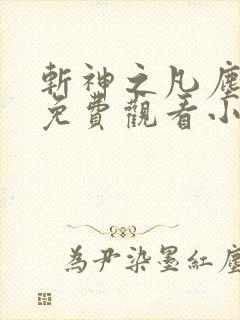 斬神之凡塵
免費觀看小
為尹染墨紅塵